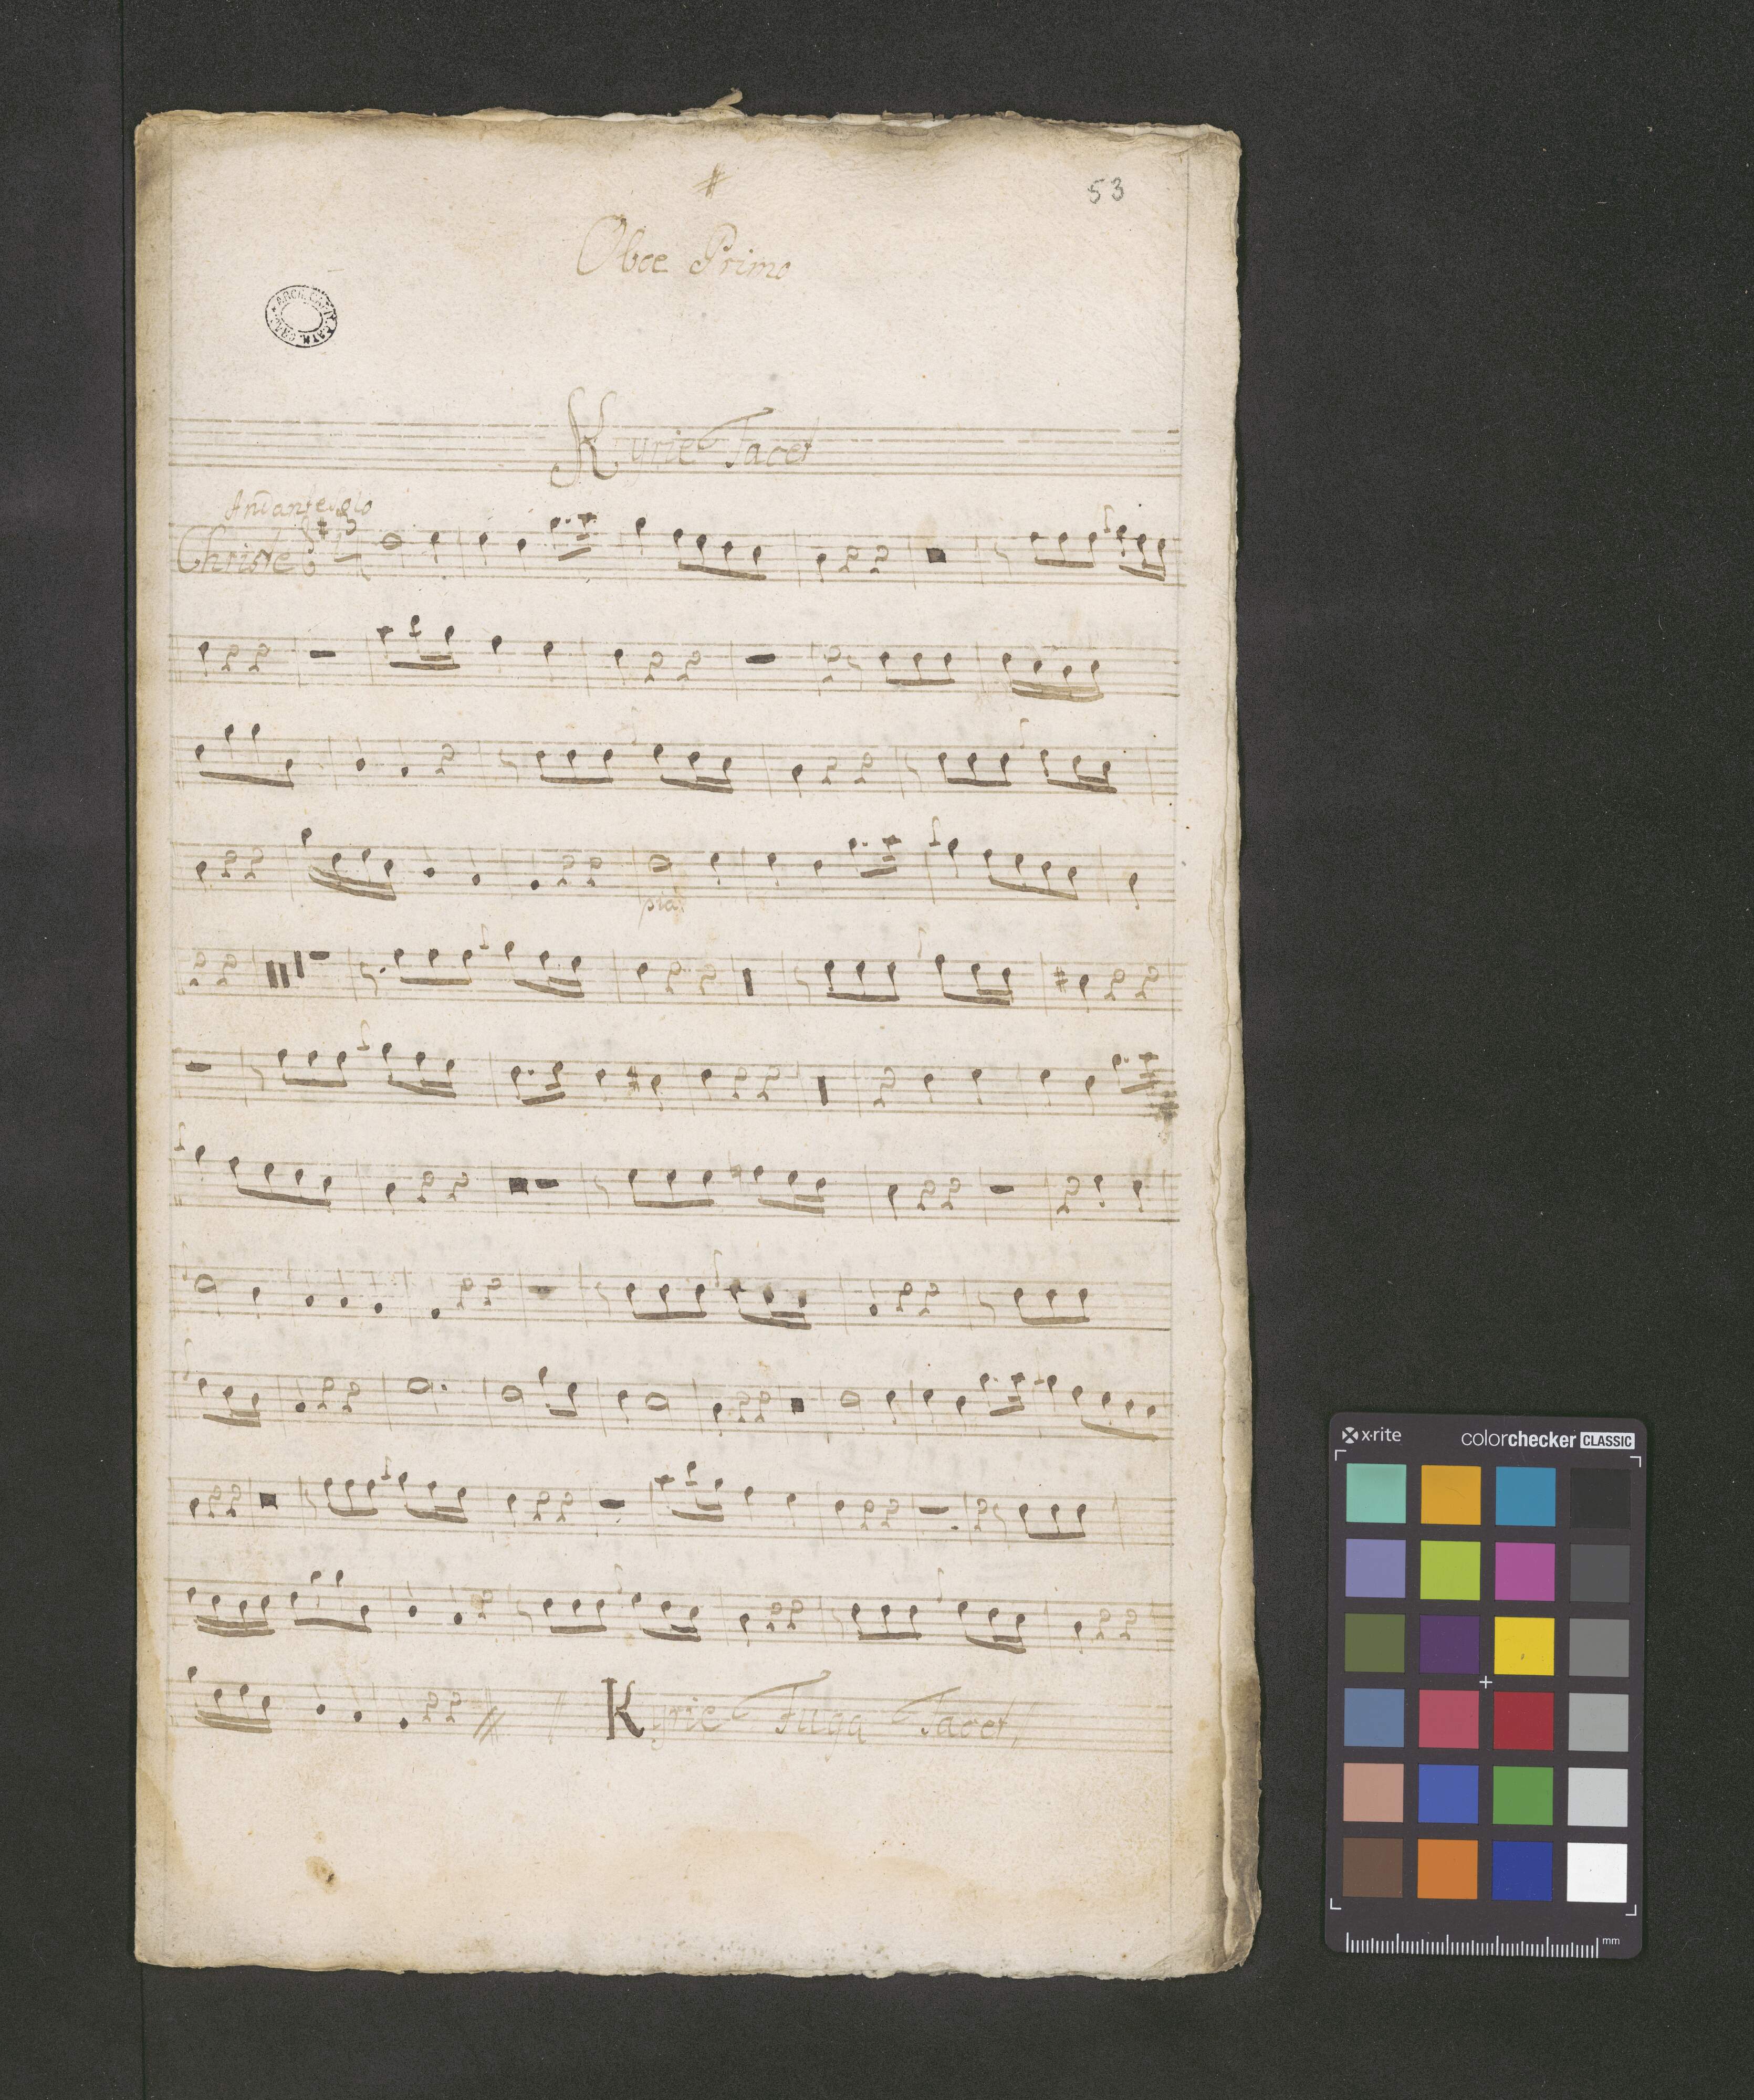 53
Oboe Primo
Kyrie Tacet
Christe
pia:
Kyrie Fuga Tacet
x-rite
colorchecker CLASSIC
mm